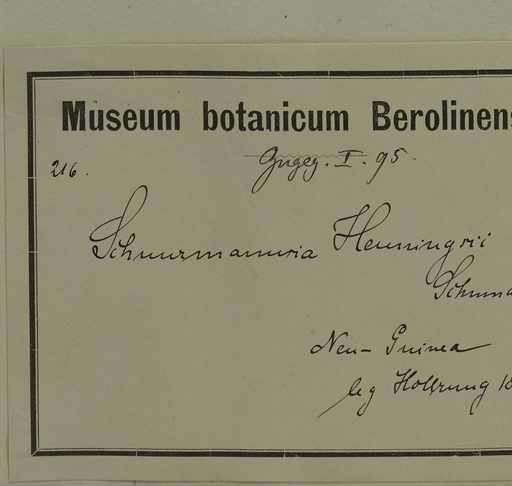 Museum botanicum Berolinens
Gugeg. I. 95.
216.
Schuurmansia Henningsii
Schuma
Neu-Guinea
leg Hollrung 18